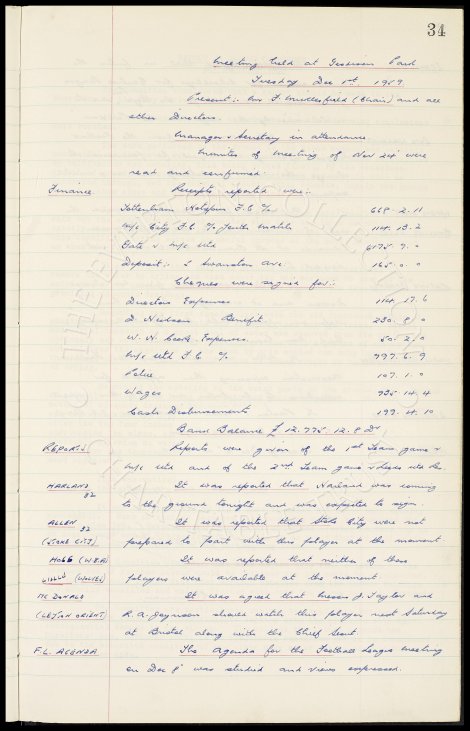 34
Meeting held at Goodison Park
Tuesday, Dec 1st, 1959
Present:- Mr F. Micklesfield (Chair) and all
other Directors.
Manager & Secretary in attendance.
Minutes of meeting of Nov 24th were
read and confirmed.
Finance. Receipts reported were:-
Tottenham Hotspur F.C. %  668. 2. 11
M/c City F.C. % Youth Match 114. 13. 2
Gate v M/c Utd 6175. 9. 0
Deposit:- Swanston Ave. 165. 0. 0
Cheques were signed for:-
Directors Expenses 114. 17. 6
Benefit 230. 8. 0
W. H. Cooke Expenses. 50. 2. 0
M/c Utd F.C. % 997. 6. 9
Police 107. 1. 0
Wages 935. 14. 4
Cash Disbursements 199. 4. 10
Bank Balance £ 12,775. 12. 8 Dr
REPORTS Reports were given of the 1st Team game v
M/c Utd and of the 2nd Team game v
HARLAND It was reported that Harland was coming
to the ground tonight and was expected to sign.
ALLEN It was reported that Stoke City were not
(STOKE CITY) prepared to part with this player at the moment
HOGG (W.B.A) It was reported that neither of these
(WOLVES) players were available at the moment.
McDONALD It was agreed that Messrs J. Taylor and
(LEYTON ORIENT) R. A. Joynson should watch this player next Saturday
at Bristol along with the Chief Scout.
F.L. AGENDA The Agenda for the Football League meeting
on Dec 8th was studied and views expressed.